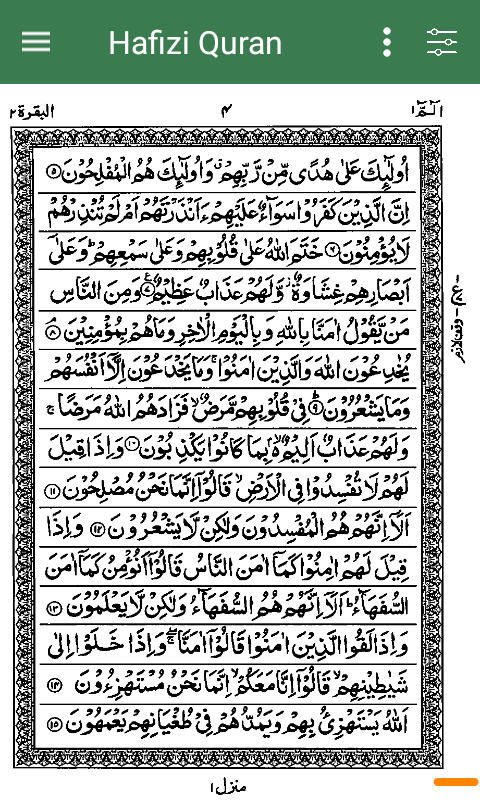 Hafizi Quran
البقرة ٢
٤
الٓمّٓ ١
اُولٰٓئِكَ عَلٰى هُدًى مِّنْ رَّبِّهِمْ ۙ وَاُولٰٓئِكَ هُمُ الْمُفْلِحُوْنَ ﴿٥﴾
اِنَّ الَّذِيْنَ كَفَرُوْا سَوَآءٌ عَلَيْهِمْ ءَاَنْذَرْتَهُمْ اَمْ لَمْ تُنْذِرْهُمْ
لَا يُؤْمِنُوْنَ ﴿٦﴾ خَتَمَ اللّٰهُ عَلٰى قُلُوْبِهِمْ وَعَلٰى سَمْعِهِمْ ؕ وَعَلٰٓى
اَبْصَارِهِمْ غِشَاوَةٌ ۫ وَّلَهُمْ عَذَابٌ عَظِيْمٌ ﴿٧﴾ وَمِنَ النَّاسِ
مَنْ يَّقُوْلُ اٰمَنَّا بِاللّٰهِ وَبِالْيَوْمِ الْاٰخِرِ وَمَا هُمْ بِمُؤْمِنِيْنَ ﴿٨﴾
يُخٰدِعُوْنَ اللّٰهَ وَالَّذِيْنَ اٰمَنُوْا ۚ وَمَا يَخْدَعُوْنَ اِلَّاۤ اَنْفُسَهُمْ
وَمَا يَشْعُرُوْنَ ﴿٩﴾ فِيْ قُلُوْبِهِمْ مَّرَضٌ ۙ فَزَادَهُمُ اللّٰهُ مَرَضًا ۚ
وَلَهُمْ عَذَابٌ اَلِيْمٌ ۢ ۙ بِمَا كَانُوْا يَكْذِبُوْنَ ﴿١٠﴾ وَاِذَا قِيْلَ
لَهُمْ لَا تُفْسِدُوْا فِي الْاَرْضِ ۙ قَالُوْۤا اِنَّمَا نَحْنُ مُصْلِحُوْنَ ﴿١١﴾
اَلَاۤ اِنَّهُمْ هُمُ الْمُفْسِدُوْنَ وَلٰكِنْ لَّا يَشْعُرُوْنَ ﴿١٢﴾ وَاِذَا
قِيْلَ لَهُمْ اٰمِنُوْا كَمَاۤ اٰمَنَ النَّاسُ قَالُوْۤا اَنُؤْمِنُ كَمَاۤ اٰمَنَ
السُّفَهَآءُ ؕ اَلَاۤ اِنَّهُمْ هُمُ السُّفَهَآءُ وَلٰكِنْ لَّا يَعْلَمُوْنَ ﴿١٣﴾
وَاِذَا لَقُوا الَّذِيْنَ اٰمَنُوْا قَالُوْۤا اٰمَنَّا ۖۚ وَاِذَا خَلَوْا اِلٰى
شَيٰطِيْنِهِمْ ۙ قَالُوْۤا اِنَّا مَعَكُمْ ۙ اِنَّمَا نَحْنُ مُسْتَهْزِءُوْنَ ﴿١٤﴾
اَللّٰهُ يَسْتَهْزِئُ بِهِمْ وَيَمُدُّهُمْ فِيْ طُغْيَانِهِمْ يَعْمَهُوْنَ ﴿١٥﴾
منزل ١